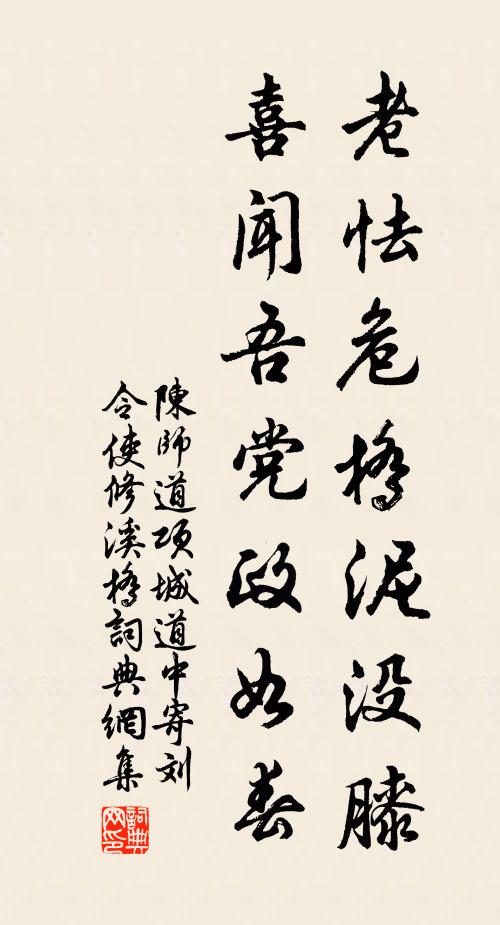 老怯危桥泥没膝
喜闻吾党政如春
陳師道项城道中寄刘
令使修溪橋詞典網集
詞典
网印